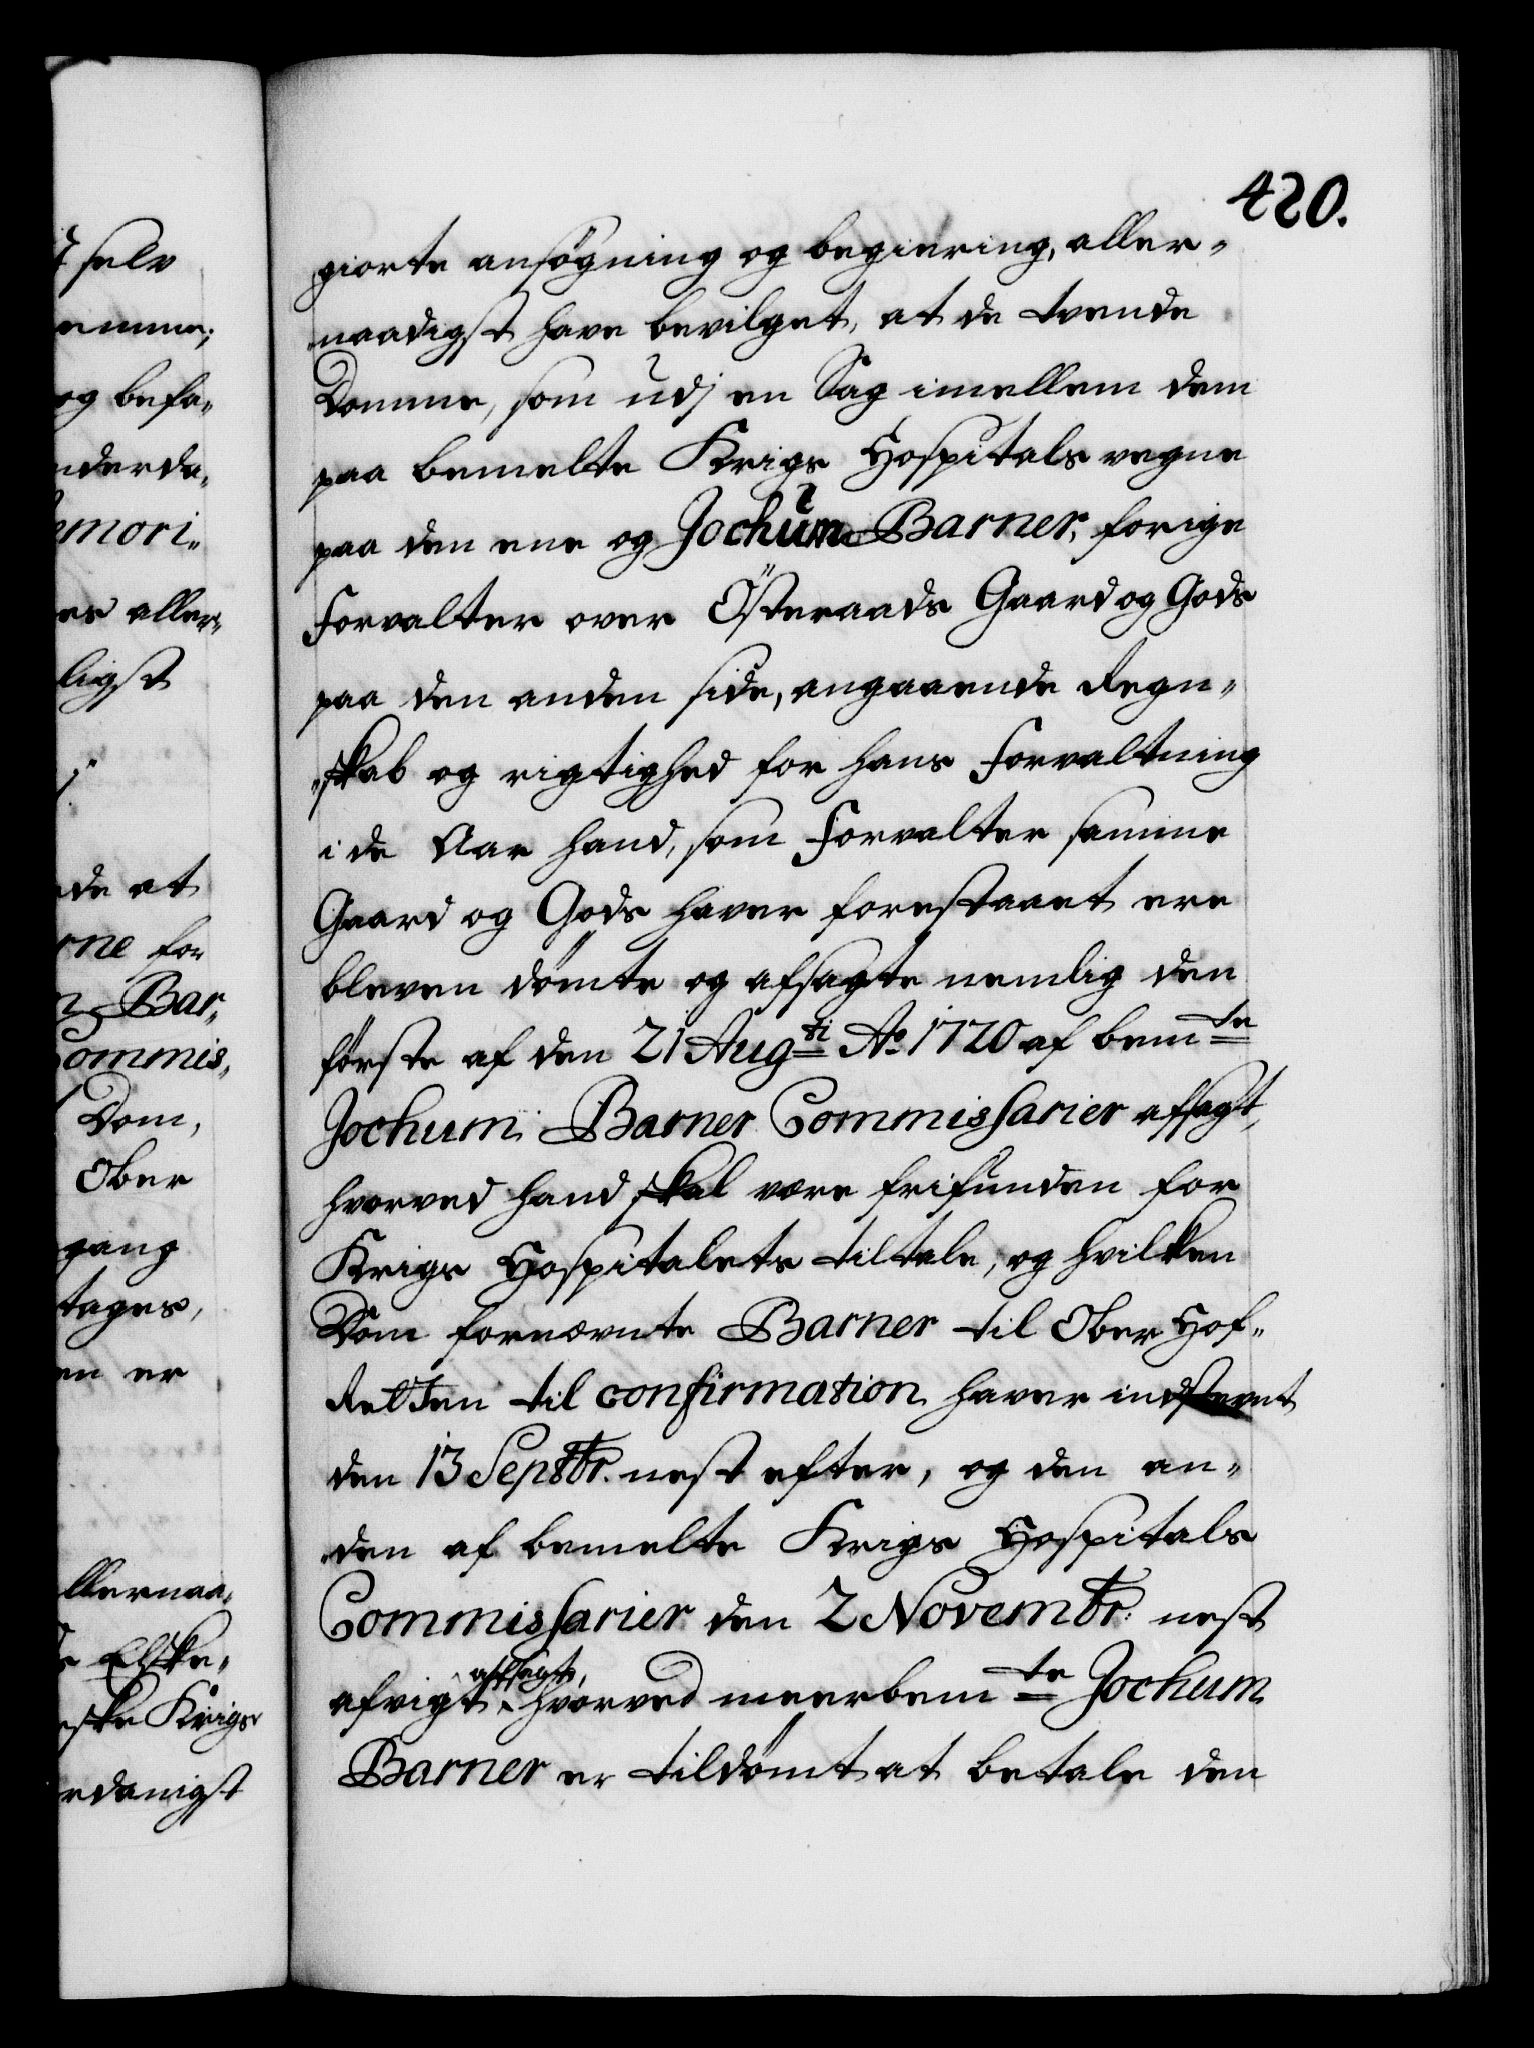 420.
giorte ansøgning og begiering, aller„
naadigst have bevilget, at de tvende
Domme, som udj en Sag imellem dem
paa bemelte Krigs Hospitals vegne
paa den ene og Jochum Barner, forige
Forvalter over Österaads Gaard og Gods
paa den anden side, angaaende Regn„
„skab og rigtighed for hans Forvaltning
i de Aar hand, som Forvalter samme
Gaard og Gods haver forestaaet ere
bleven dömte og afsagte nemlig den
förste af den 21 Augti Ao. 1720 af bemte
Jochum Barner Commissarier afsagt,
hvorved hand skal være frifunden for
Krigs Hospitalets tiltale, og hvilken
Dom fornævnte Barner til Ober Hof„
Retten til confirmation haver indstevnt
den 13 Septbr. nest efter, og den an„
den af bemelte Krigs Hospitals
Commissarier den 2 Novembr: nest
afvigt afsagt, hvorved meerbemte Jochum
Barner er tildömt at betale den
t selv
emme;
og befa„
nderda„
emori„
es aller„
ligst
de at
rne for
Bar„
Commis„
Dom,
Ober
gang
tages,
en er
llernaa„
Elske„
eske Krigs
rdanigst